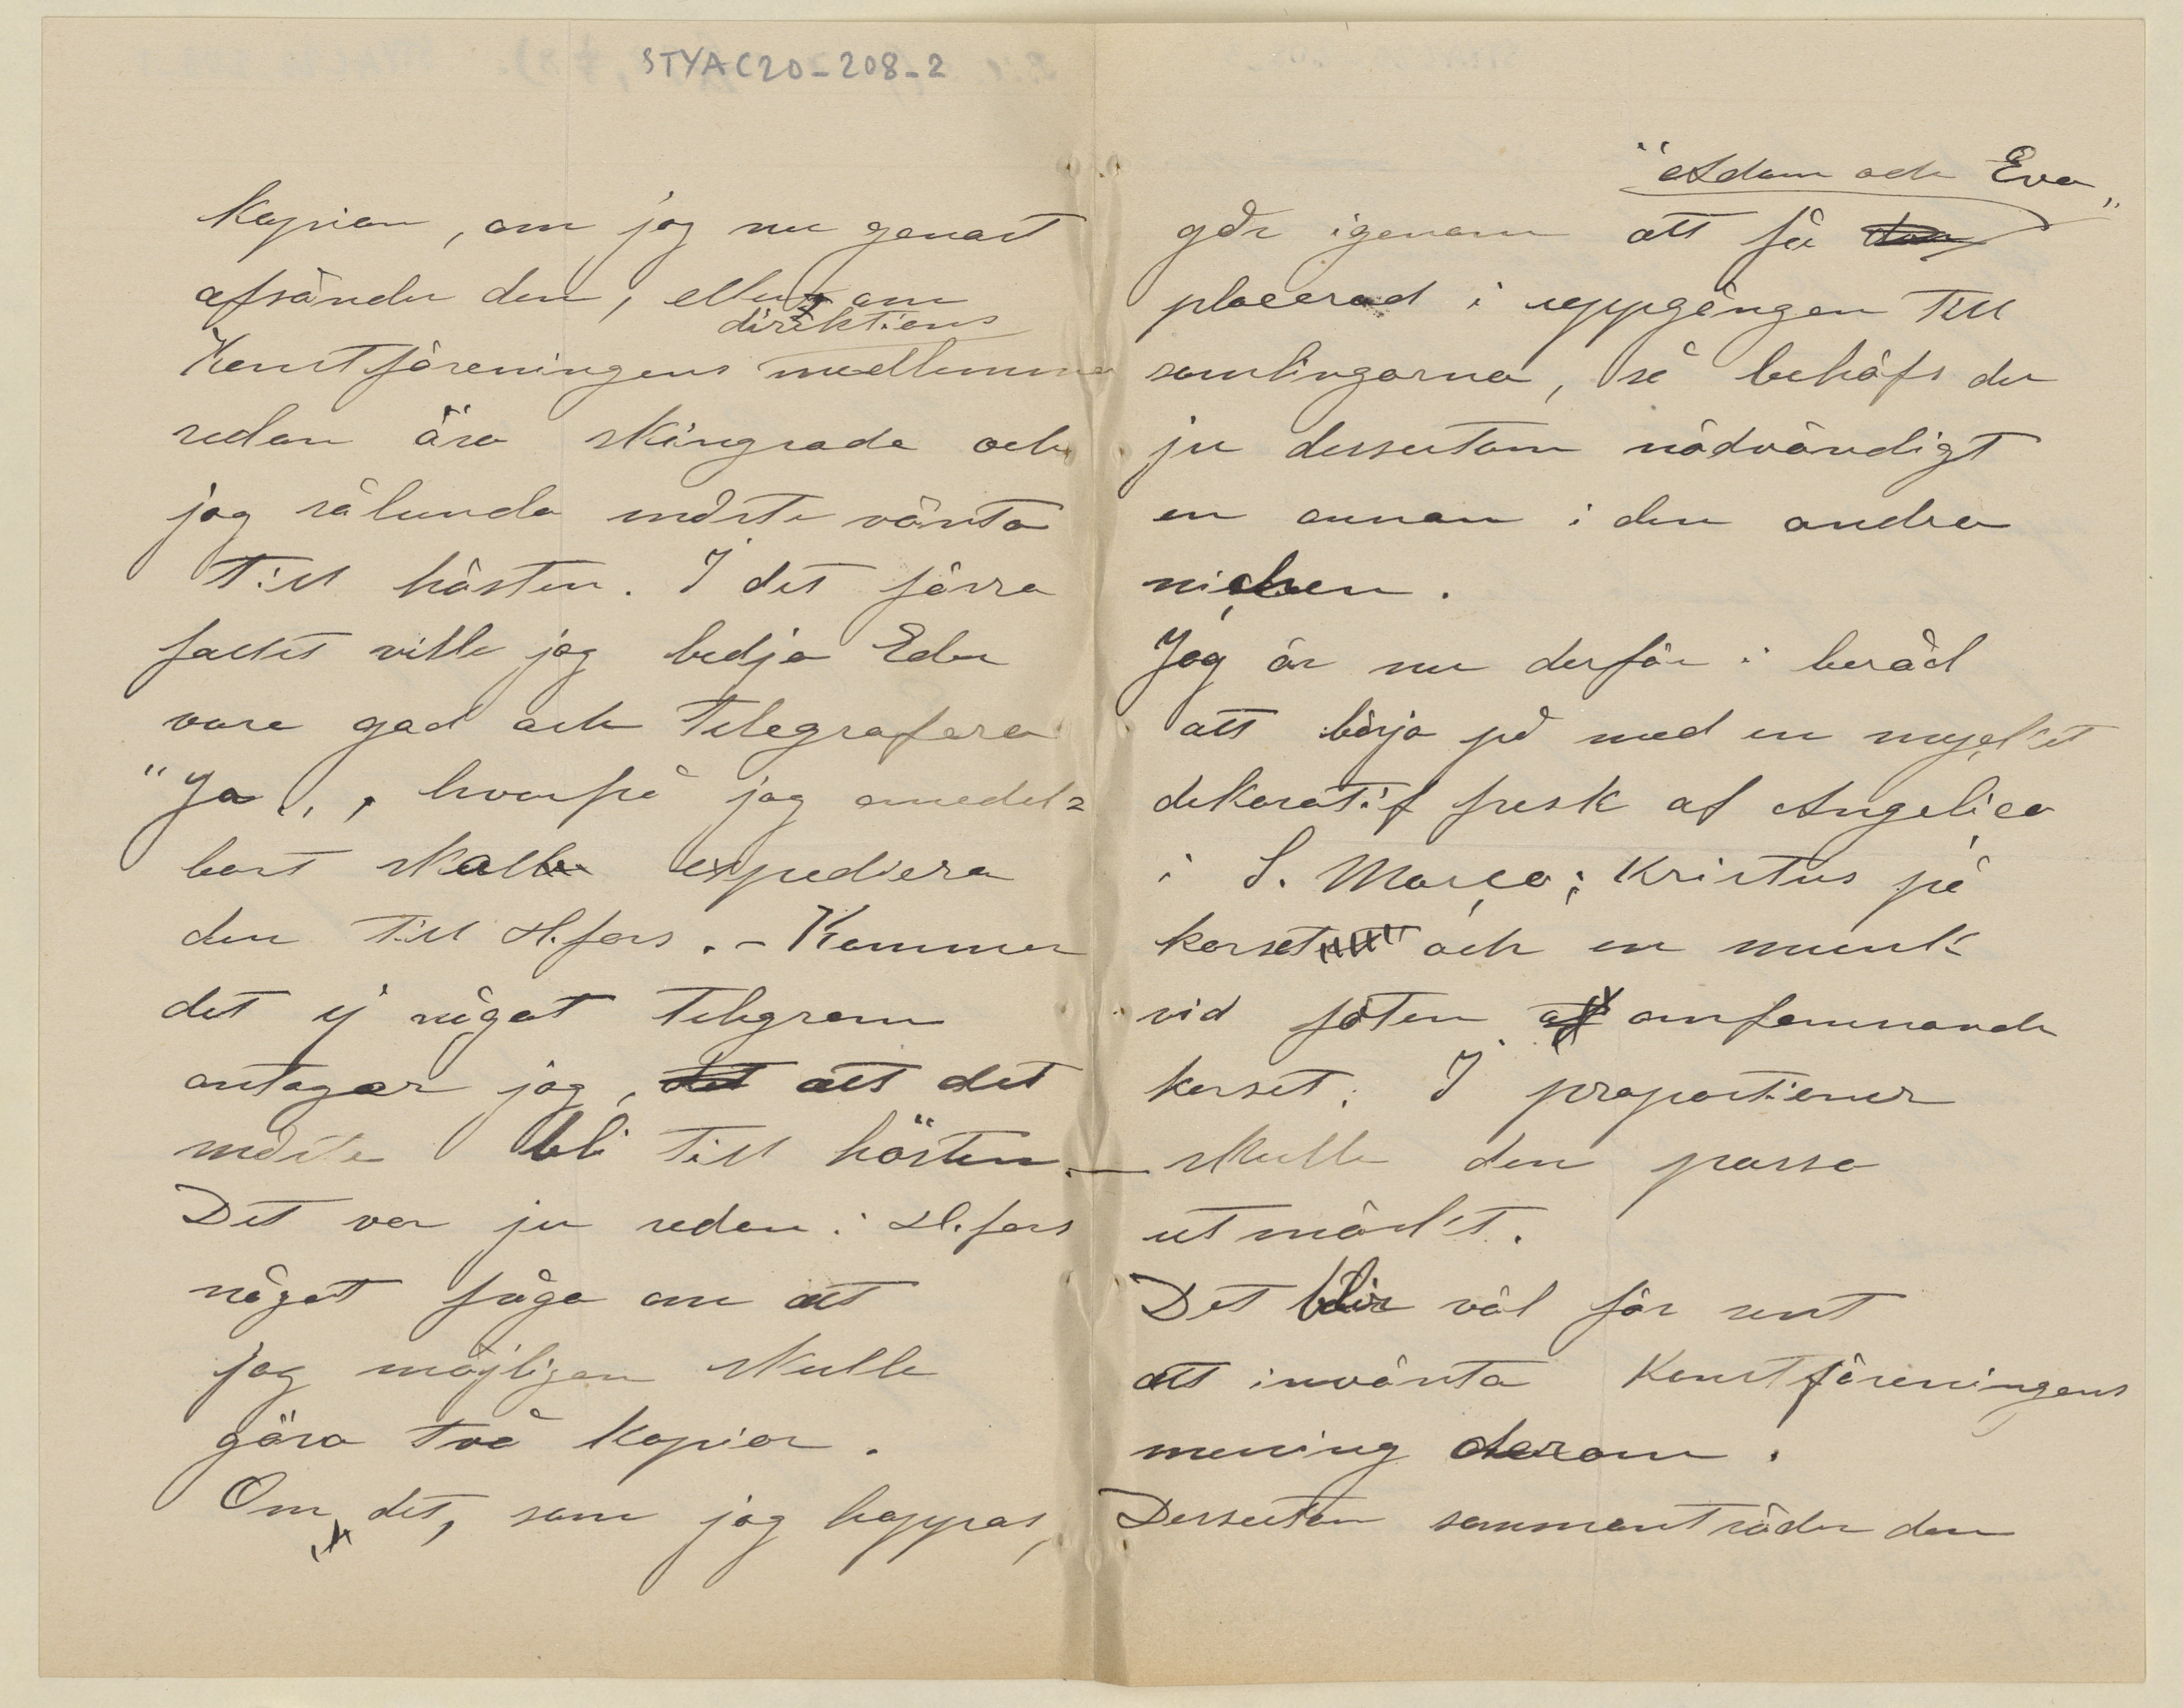 STYAC20-208-2
kopian, om jag nu genast
afsänder den, eller om
direktions
Konstföreningens medlemmar
redan äro skingrade och
jag sålunda måste vänta
till hösten. I det förra
fallet ville jag bedja Eder
vara god och telegrafera
"Ja", hvarpå jag omedel=
bart skall expediera
den till H.fors. - Kommer
det ej något telegram
antager jag, det att det
måste bli till hösten. —
Det var ju redan i H.fors
något fråga om att
jag möjligen skulle
göra två kopior.
Om det, som jag hoppas,
"Adam och Eva"
går igenom att få den
placerad i uppgången till
samlingarna, så behöfs der
ju dessutom nödvändigt
en annan i den andra
nichen.
Jag är nu derför i beråd
att börja på med en mycket
dekoratif fresk af Angelico
i S. Marco; Kristus på
korset och en munk
vid foten af omfamnande
korset. I proportioner
skulle den passa
utmärkt.
Det blir väl för sent
att invänta Konstföreningens
mening derom.
Dessutom sammanträder den